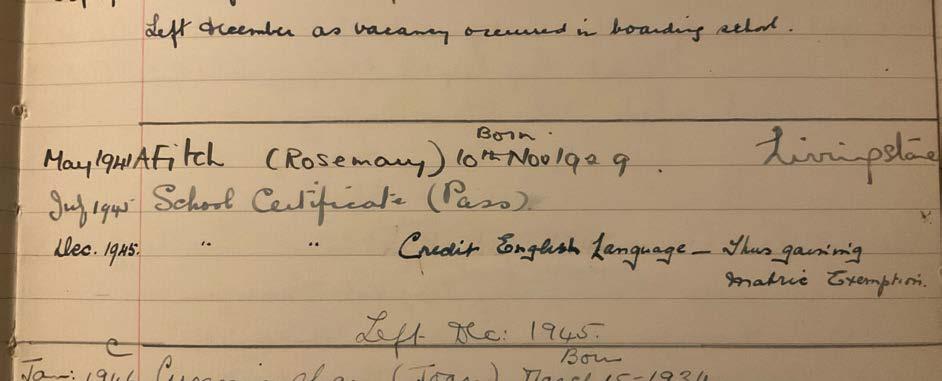 Left December as vacancy occurred in boarding school.
Born.
May 1941 A Fitch (Rosemary) 10th Nov 1929. Livingstone
July 1945 School Certificate (Pass).
Dec. 1945. " " Credit English Language – Thus gaining
Matric Exemption.
Left Dec: 1945.
C Born
Jan: 1941 (Joan) March 15 - 1934